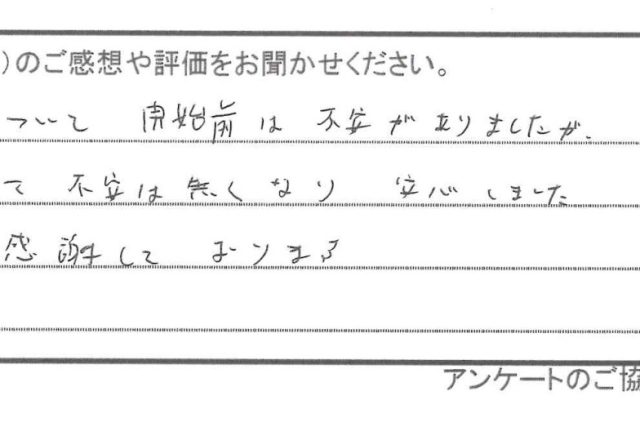 )のご感想や評価をお聞かせください。
ついて 開始前は 不安がありましたが、
て 不安は無くなり 安心しました
感謝して おります
アンケートのご協